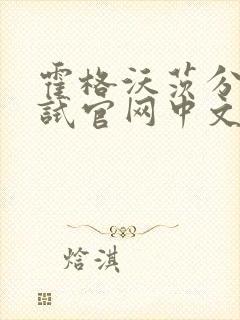 霍格沃茨分
試官网中文
焓淇